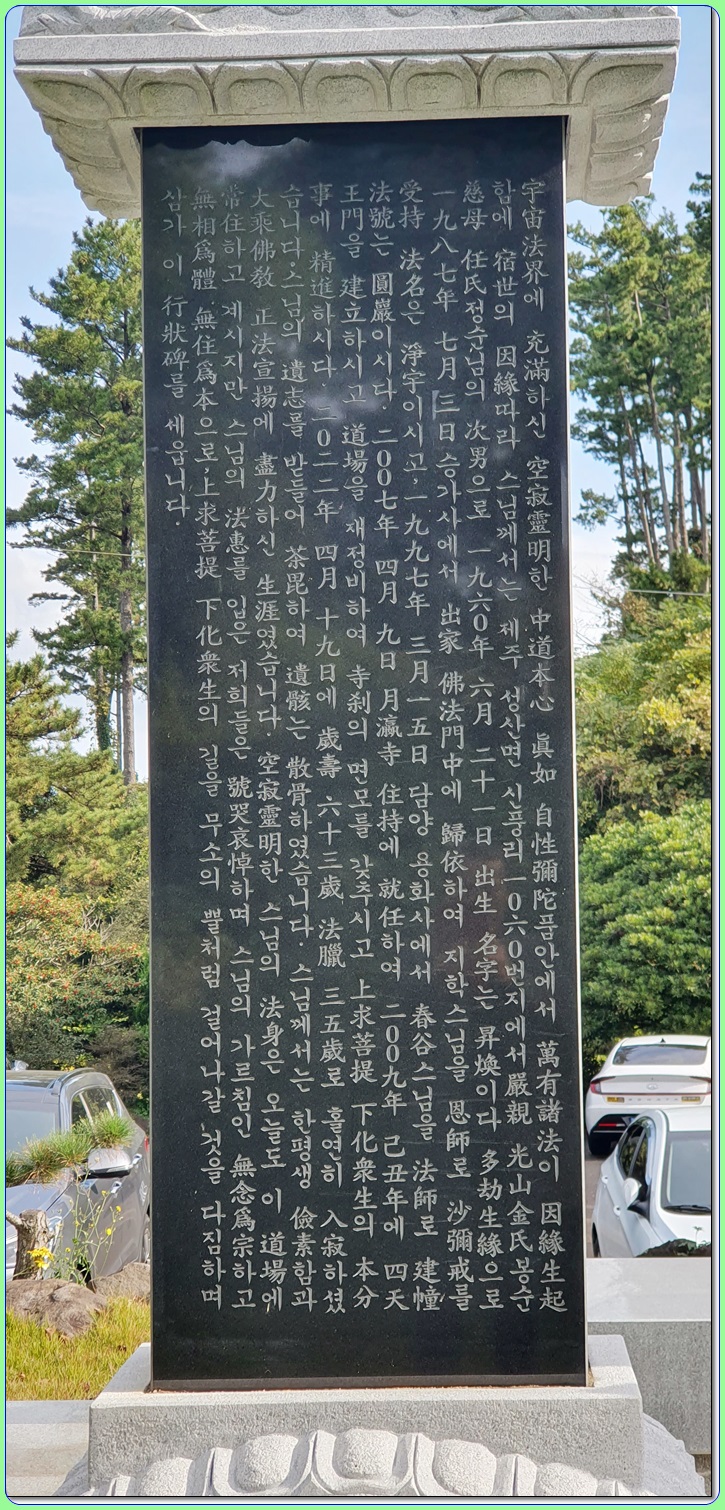 宇宙法界에 充滿하신 空寂靈明한 中道本心 眞如 自性彌陀품안에서 萬有諸法이 因緣生起
함에 宿世의 因緣따라 스님께서는 제주 성산면 신풍리 一0六0번지에서 嚴親 光山金氏봉순
慈母 任氏정순님의 次男으로 一九六0年 六月 二十一日 出生 名字는 昇煥이다 多劫生緣으로
一九八七年 七月 三日 승가사에서 出家 佛法門中에 歸依하여 지학스님을 恩師로 沙彌戒를
受持 法名은 淨宇이시고, 一九九七年 三月 一五日 담양 용화사에서 春谷스님을 法師로 建幢
法號는 圓巖이시다. 二00七年 四月 九日 月瀛寺 住持에 就任하여 二00九年 己丑年에 四天
王門을 建立하시고 道場을 재정비하여 寺刹의 면모를 갖추시고 上求菩提 下化衆生의 本分
事에 精進하시다. 二0二二年 四月 十九日에 歲壽 六十三歲 法臘 三五歲로 홀연히 入寂하셨
습니다. 스님의 遺志를 받들어 茶毘하여 遺骸는 散骨하였습니다. 스님께서는 한평생 儉素함과
大乘佛敎 正法宣揚에 盡力하신 生涯였습니다. 空寂靈明한 스님의 法身은 오늘도 이 道場에
常住하고 계시지만 스님의 法惠를 입은 저희들은 號哭哀悼하며 스님의 가르침인 無念爲宗하고
無相爲體 無住爲本으로, 上求菩提 下化衆生의 길을 무소의 뿔처럼 걸어나갈 것을 다짐하며
삼가 이 行狀碑를 세웁니다.